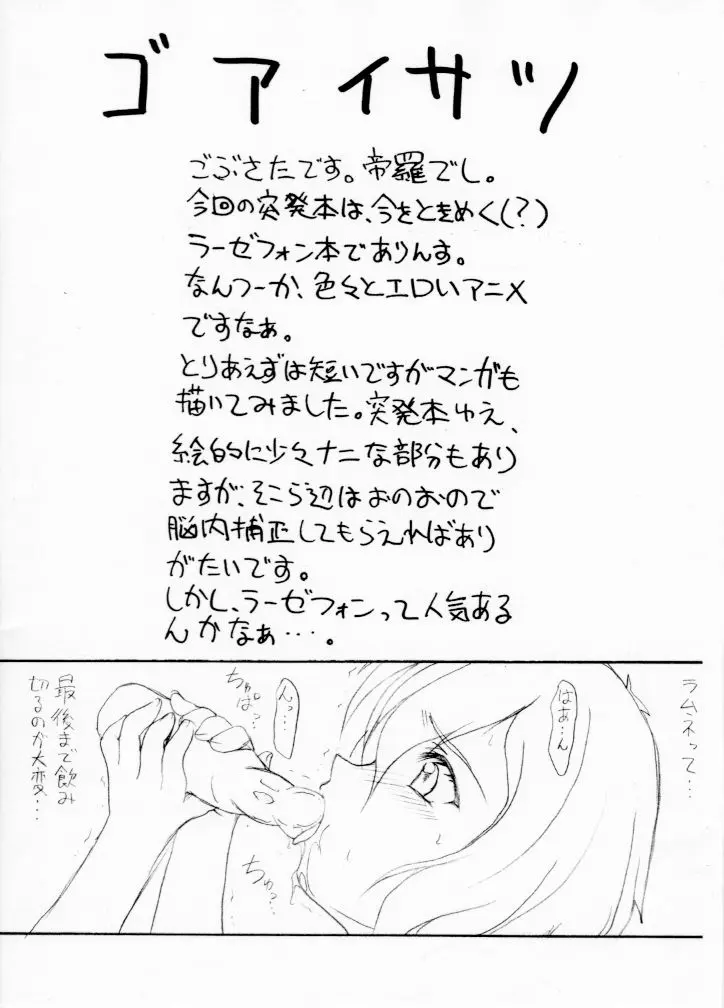 ゴアイサツ
ごぶさたです。帝羅でし。
今回の突発本は、今をときめく(?)
ラーゼフォン本でありんす。
なんつーか、色々とエロいアニメ
ですなぁ。
とりあえずは短いですがマンガも
描いてみました。突発本ゆえ、
絵的に少々ナニな部分もあり
ますが、そこら辺はおのおので
脳内補正してもらえればあり
がたいです。
しかし、ラーゼフォンって人気ある
んかなぁ…。
ラムネって…
はぁ…ん
んっ…
ちゅぱっ…
ちゅっ…
最後まで飲み
切るのが大変…